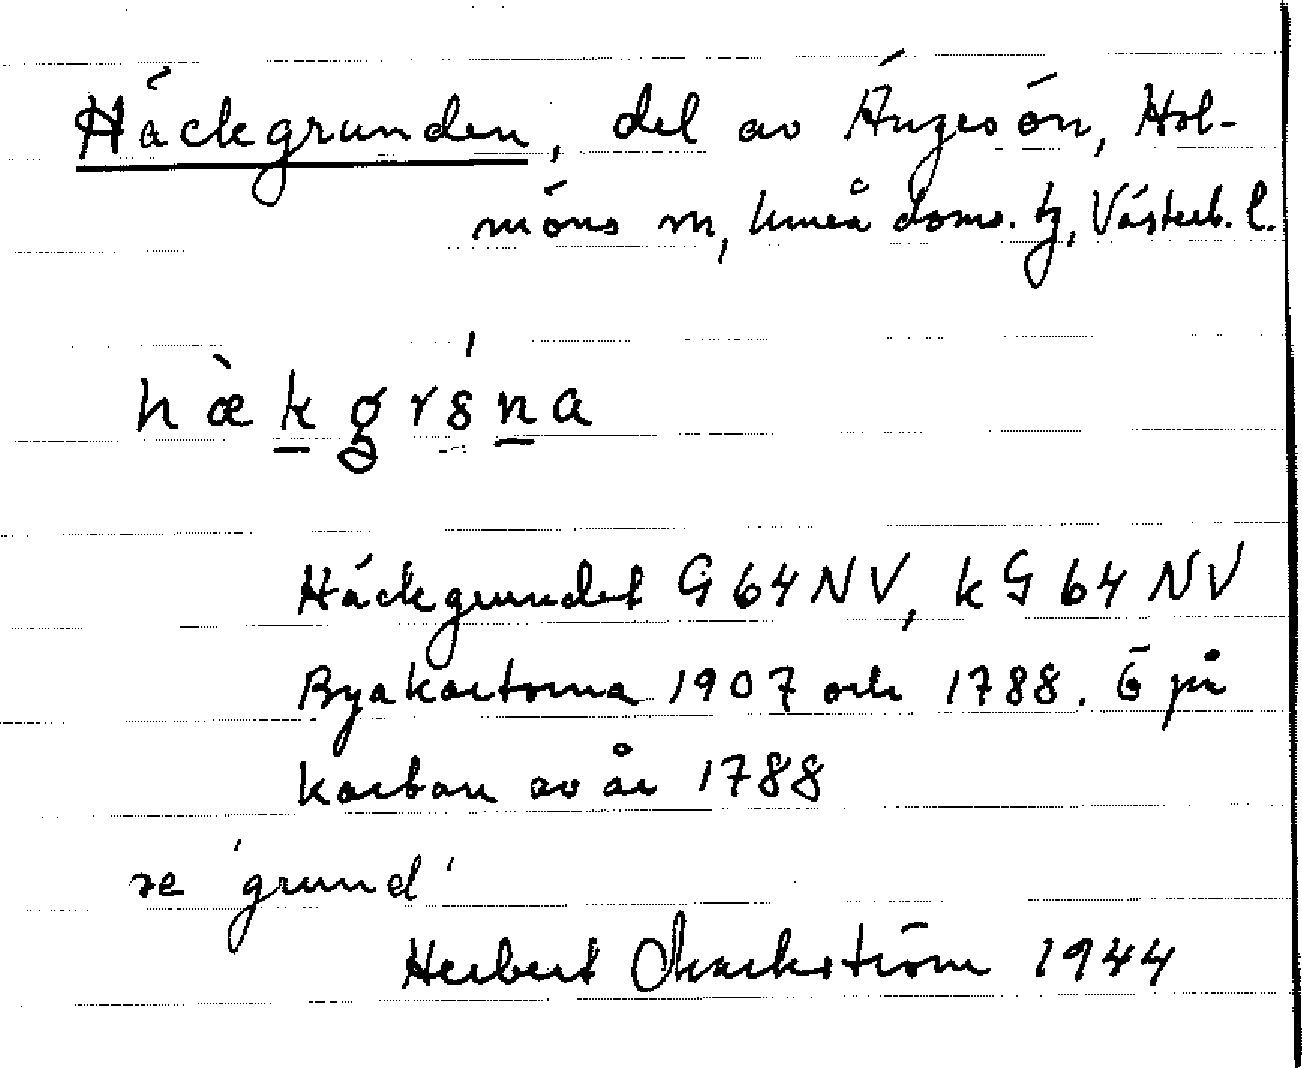 Häckgrunden, del av Ängesön, Hol-
möns sn, Umeå doms. tg, Västerb. l.
hækgrsna
Häckgrundet G64NV, kG64NV
Byakartorna 1907 och 1788. Ö på
kartan av år 1788
se 'grund'
Herbert Markström 1944